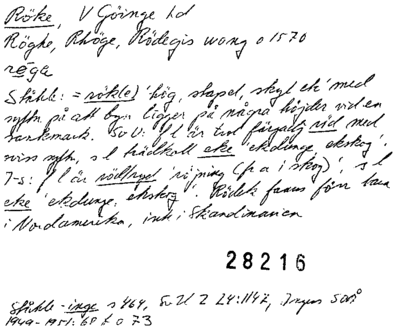 Röke, V Göinge hd
Röghe, Rhöge, Rödegis wong o 1570
rēga
Ståhle: = rök(e) 'hög, stapel, skyl etc' med
syftn på att byn ligger på några höjder vid en
sankmark. SOU: f l är trol färgadj vid med
viss syftn, s l trädkoll eke 'ekdunge, ekskog'.
J-s: f l är röd 'röjning (fr a i skog)', s l
eke 'ekdunge, ekskog'. Rödek fanns förr bara
i Nordamerika, inte i Skandinavien
28216
Ståhle -inge s 464, SoU 2 24:1147, Ingers Sora
1949-1951: 68 f o 73